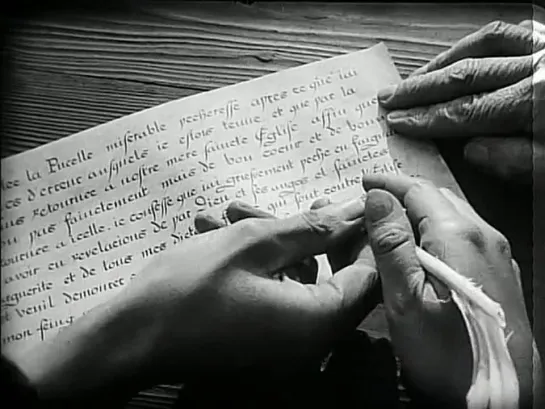 lee la Pucelle miserable pecheresse apres ce que iai
d'erreur ausquels ie estois tenue et que par la
retournee a nostre mere saincte Eglise affin que
pas fainctement mais de bon coeur et de bonne
tournee a icelle, ie confesse que iai griefuement peche en
avoir eu revelacions de par Dieu et ses anges et saincte
arguerite et de tous mes qui font contre Eglise
et veuil demourer
mon